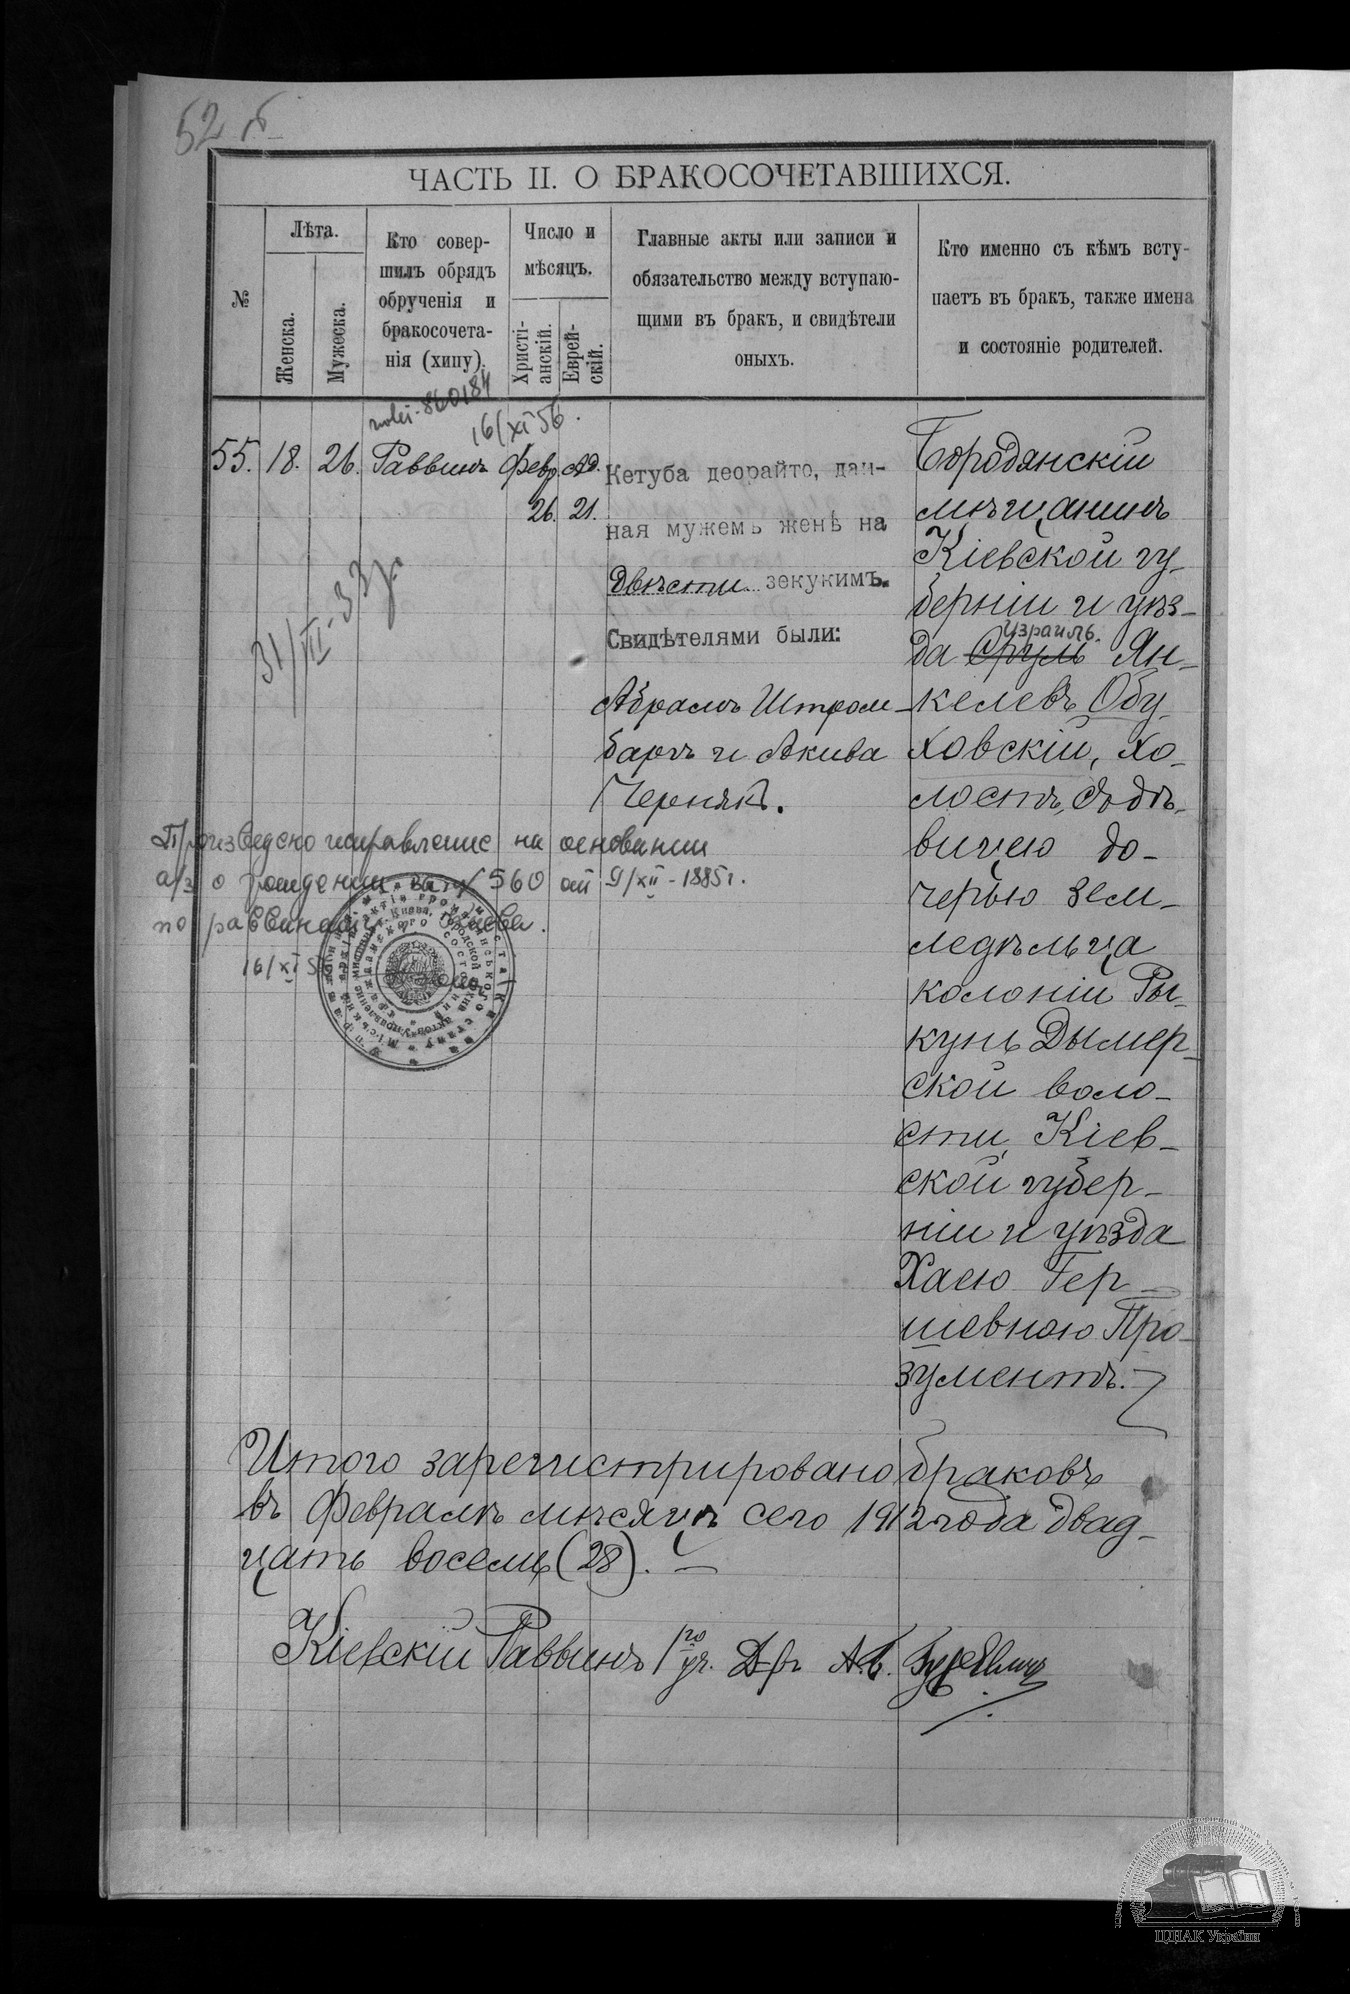 52 об
ЧАСТЬ II. О БРАКОСОЧЕТАВШИХСЯ.
№
Лѣта.
Женска.
Мужеска.
Кто совер-
шилъ обрядъ
обрученія и
бракосочета-
нія (хипу).
Число и
мѣсяцъ.
Христі-
анскій.
Еврей-
скій.
Главные акты или записи и
обязательство между вступаю-
щими въ бракъ, и свидѣтели
оныхъ.
Кто именно съ кѣмъ всту-
паетъ въ бракъ, также имена
и состояніе родителей.
860184
16/XI 56.
55. 18. 26. Раввинъ Февр. Ад.
26. 21.
Кетуба деорайто, дан-
ная мужемъ женѣ на
двѣсти зекукимъ.
Свидѣтелями были:
Абрамъ Штром-
барх и Акива
Чернякъ.
Бородянскій
мѣщанинъ
Кіевской гу-
берніи и уѣз-
Израиль.
да Сруль Ян-
келевъ Обу-
ховскій, хо-
лостъ, съ дѣ-
вицею до-
черью зем-
ледѣльца
колоніи Ры-
кунь Дымер-
ской воло-
сти, Кіев-
ской губер-
ніи и уѣзда
Хаею Гер-
шевною Про-
зументъ.
31/III-33г.
Произведено исправление на основании
а/з о рождении за № 560 от 9/XII-1885г.
по раввинату Киева.
16/XI 56
Итого зарегистрировано браковъ
въ Февралѣ мѣсяцѣ сего 1912 года двад-
цать восемь (28).
Кіевскій Раввинъ 1го уч. Д-ръ А.Б. Гуревичъ
ЦДІАК України